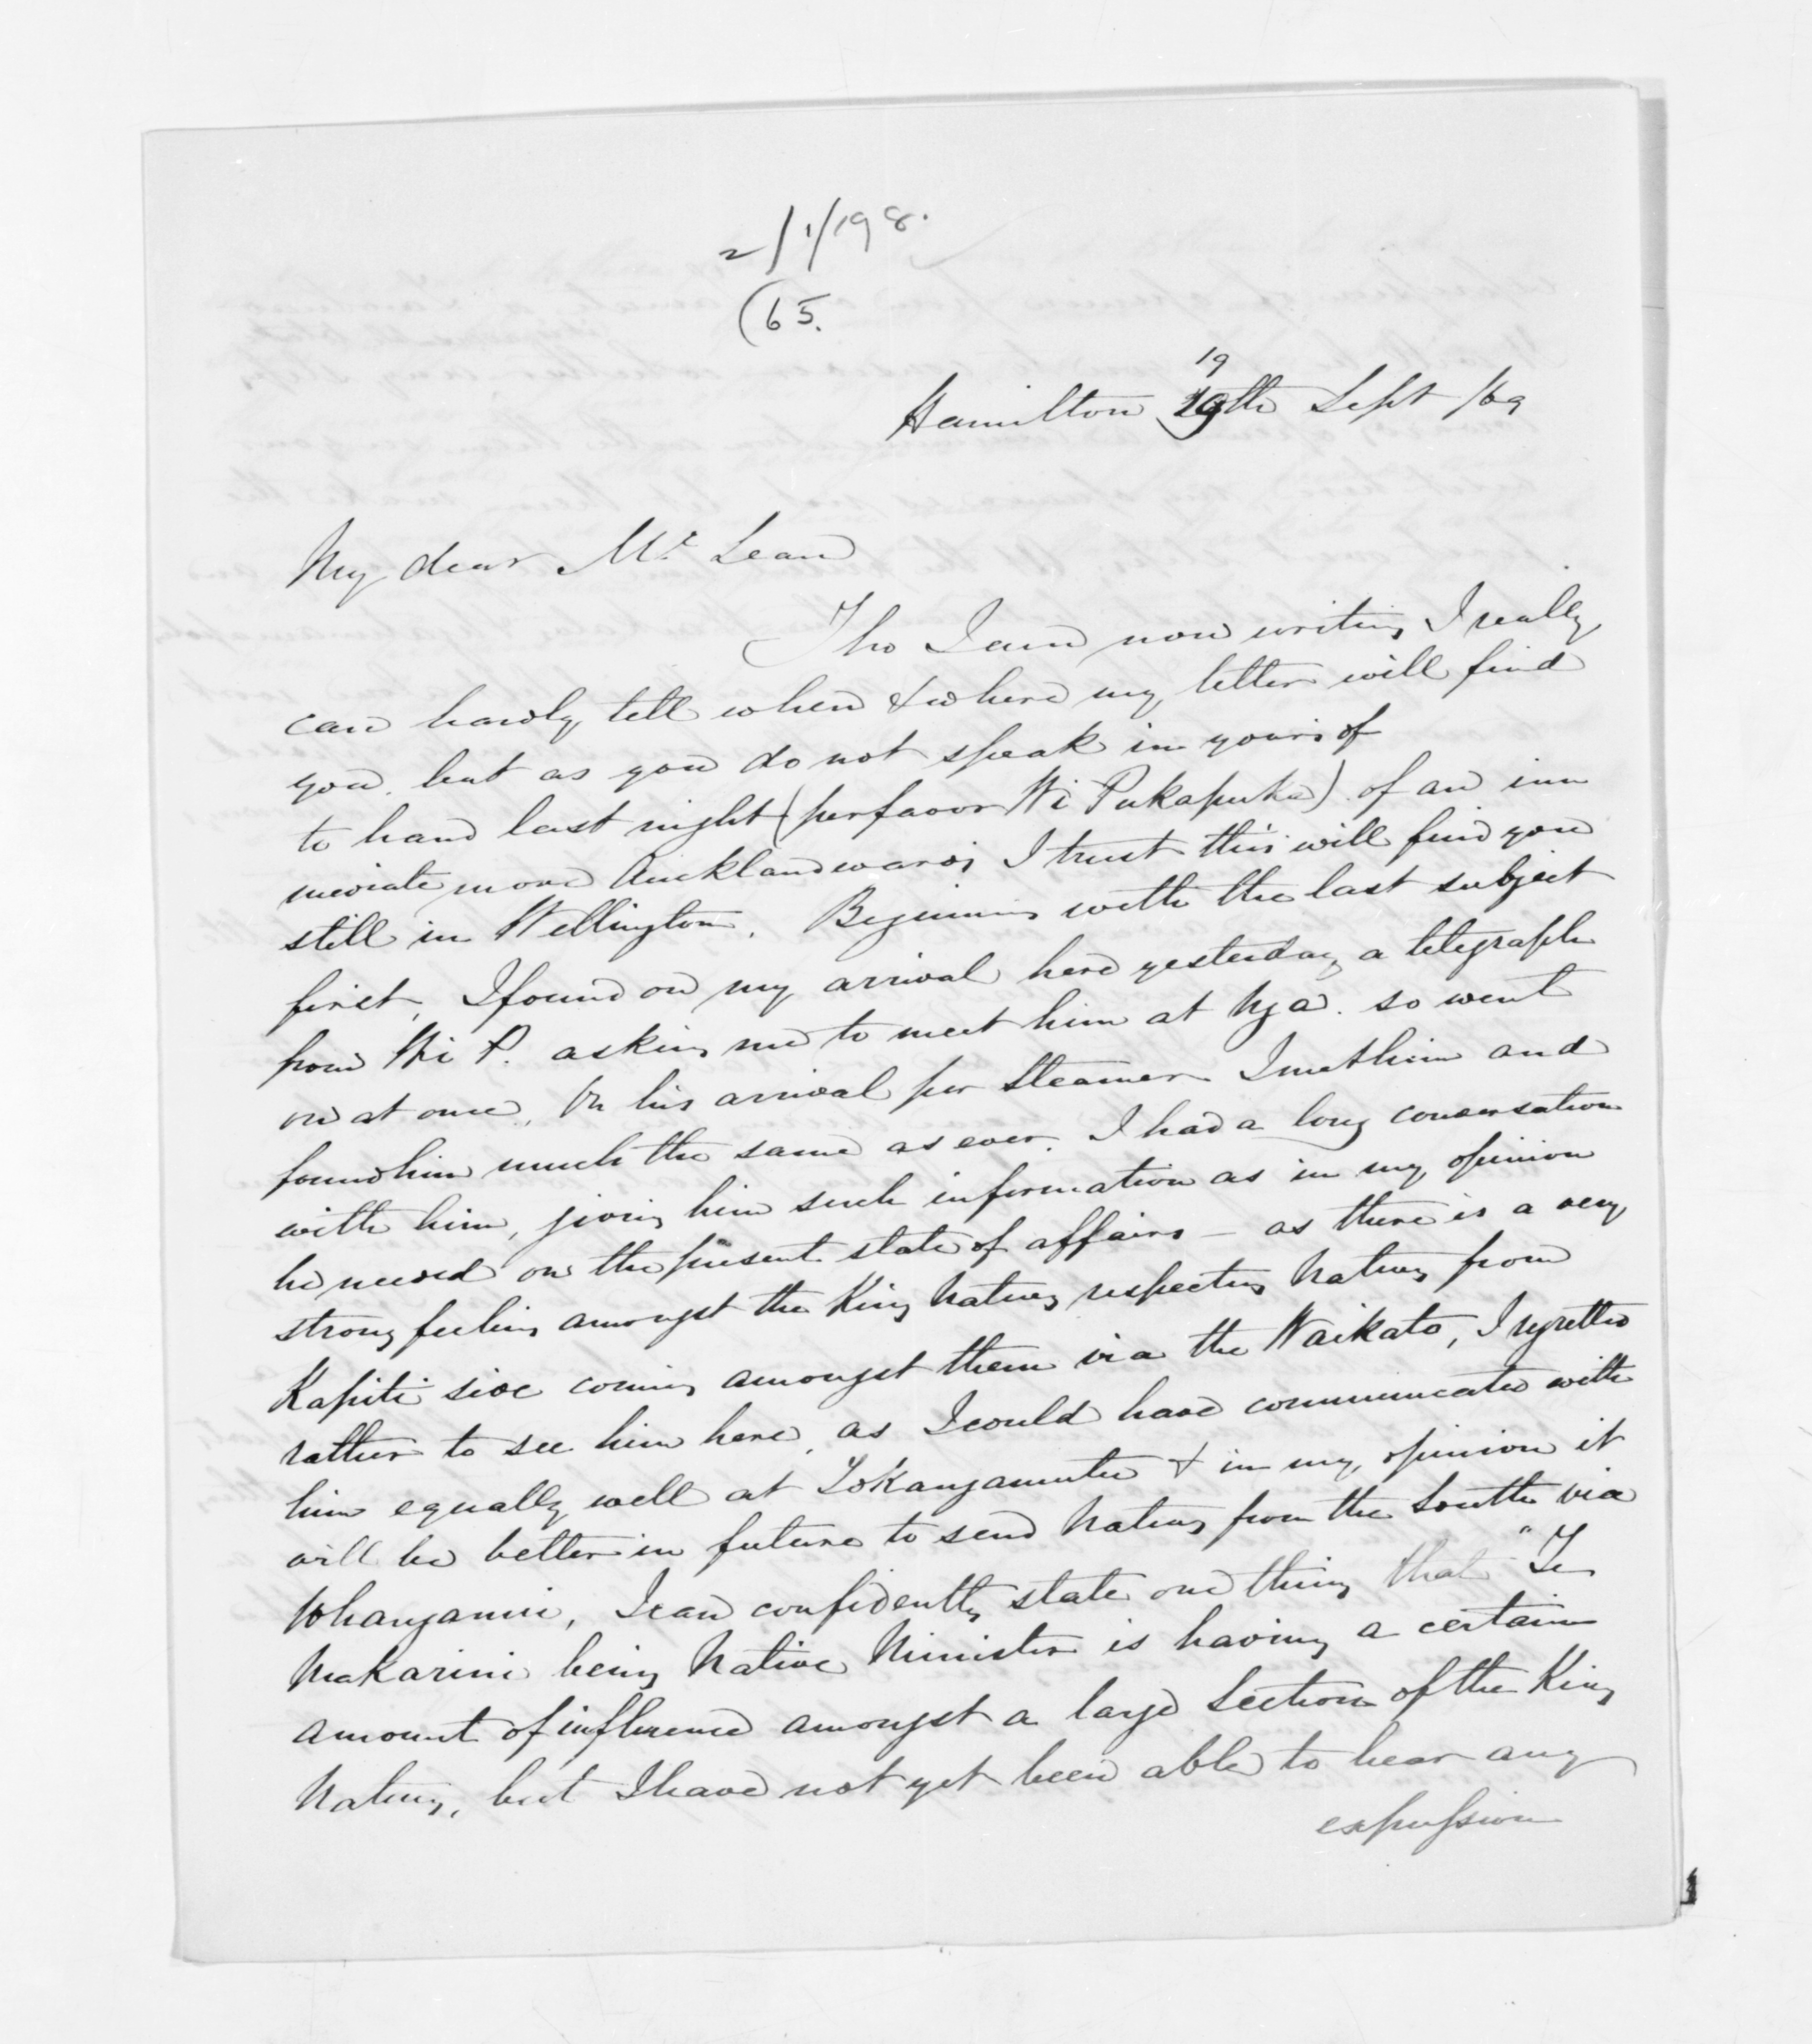 2/1/198.
(65.
19
Hamilton 19th Sept /69
My dear Mc Lean
Tho I am now writing I really
can hardly tell when & where my letter will find
you. but as you do not speak in yours of
to hand last night (per favor Wi Pukapuka) of an im
mediate move Aucklandwards I trust this will find you
still in Wellington. Beginning with the last subject
first, I found on my arrival here yesterday a telegraph
from Wi P. asking me to meet him at Nga. so went
on at once, On his arrival per Steamer I met him and
found him much the same as ever. I had a long conversation
with him, giving him such information as in my opinion
he needed on the present state of affairs - as there is a very
strong feeling amongst the King Natives respecting Natives from
Kapiti side coming amongst them via the Waikato, I regretted
rather to see him here, as I could have communicated with
him equally well at Tokangamutu & in my opinion it
will be better in future to send Natives from the South via
Whanganui, I can confidently state one thing that "Te
Makarini being Native Minister is having a certain
amount of influence amongst a large section of the King
Natives, but I have not yet been able to hear any
expression